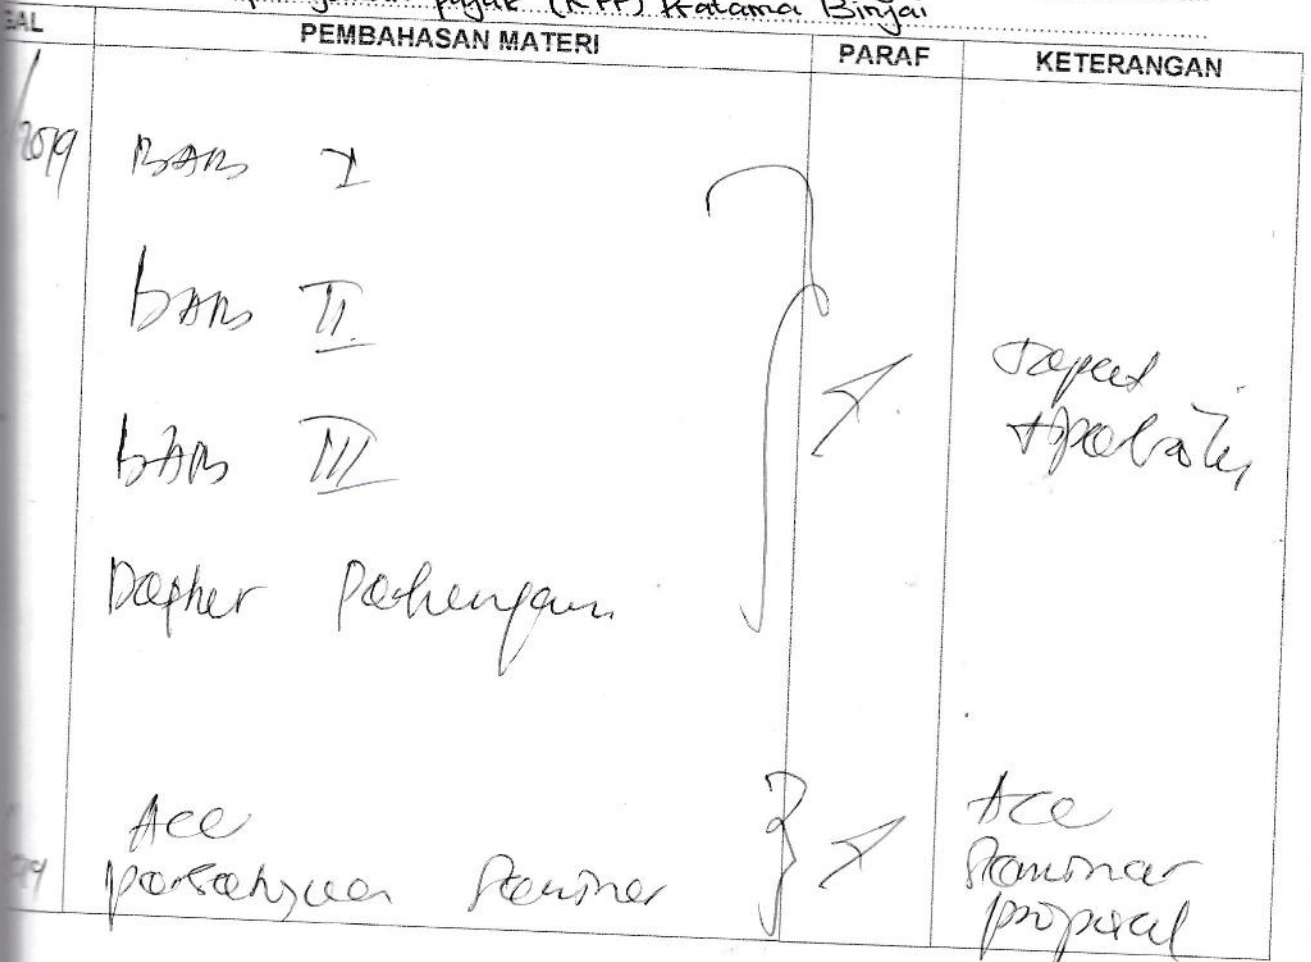 pajak (KPP) Pratama Binjai
PEMBAHASAN MATERI PARAF KETERANGAN
/2019
BAB I
BAB II
BAB III
Dapat
diperbaiki
Daftar
Acc
persetujuan Seminar
Acc
Seminar
proposal